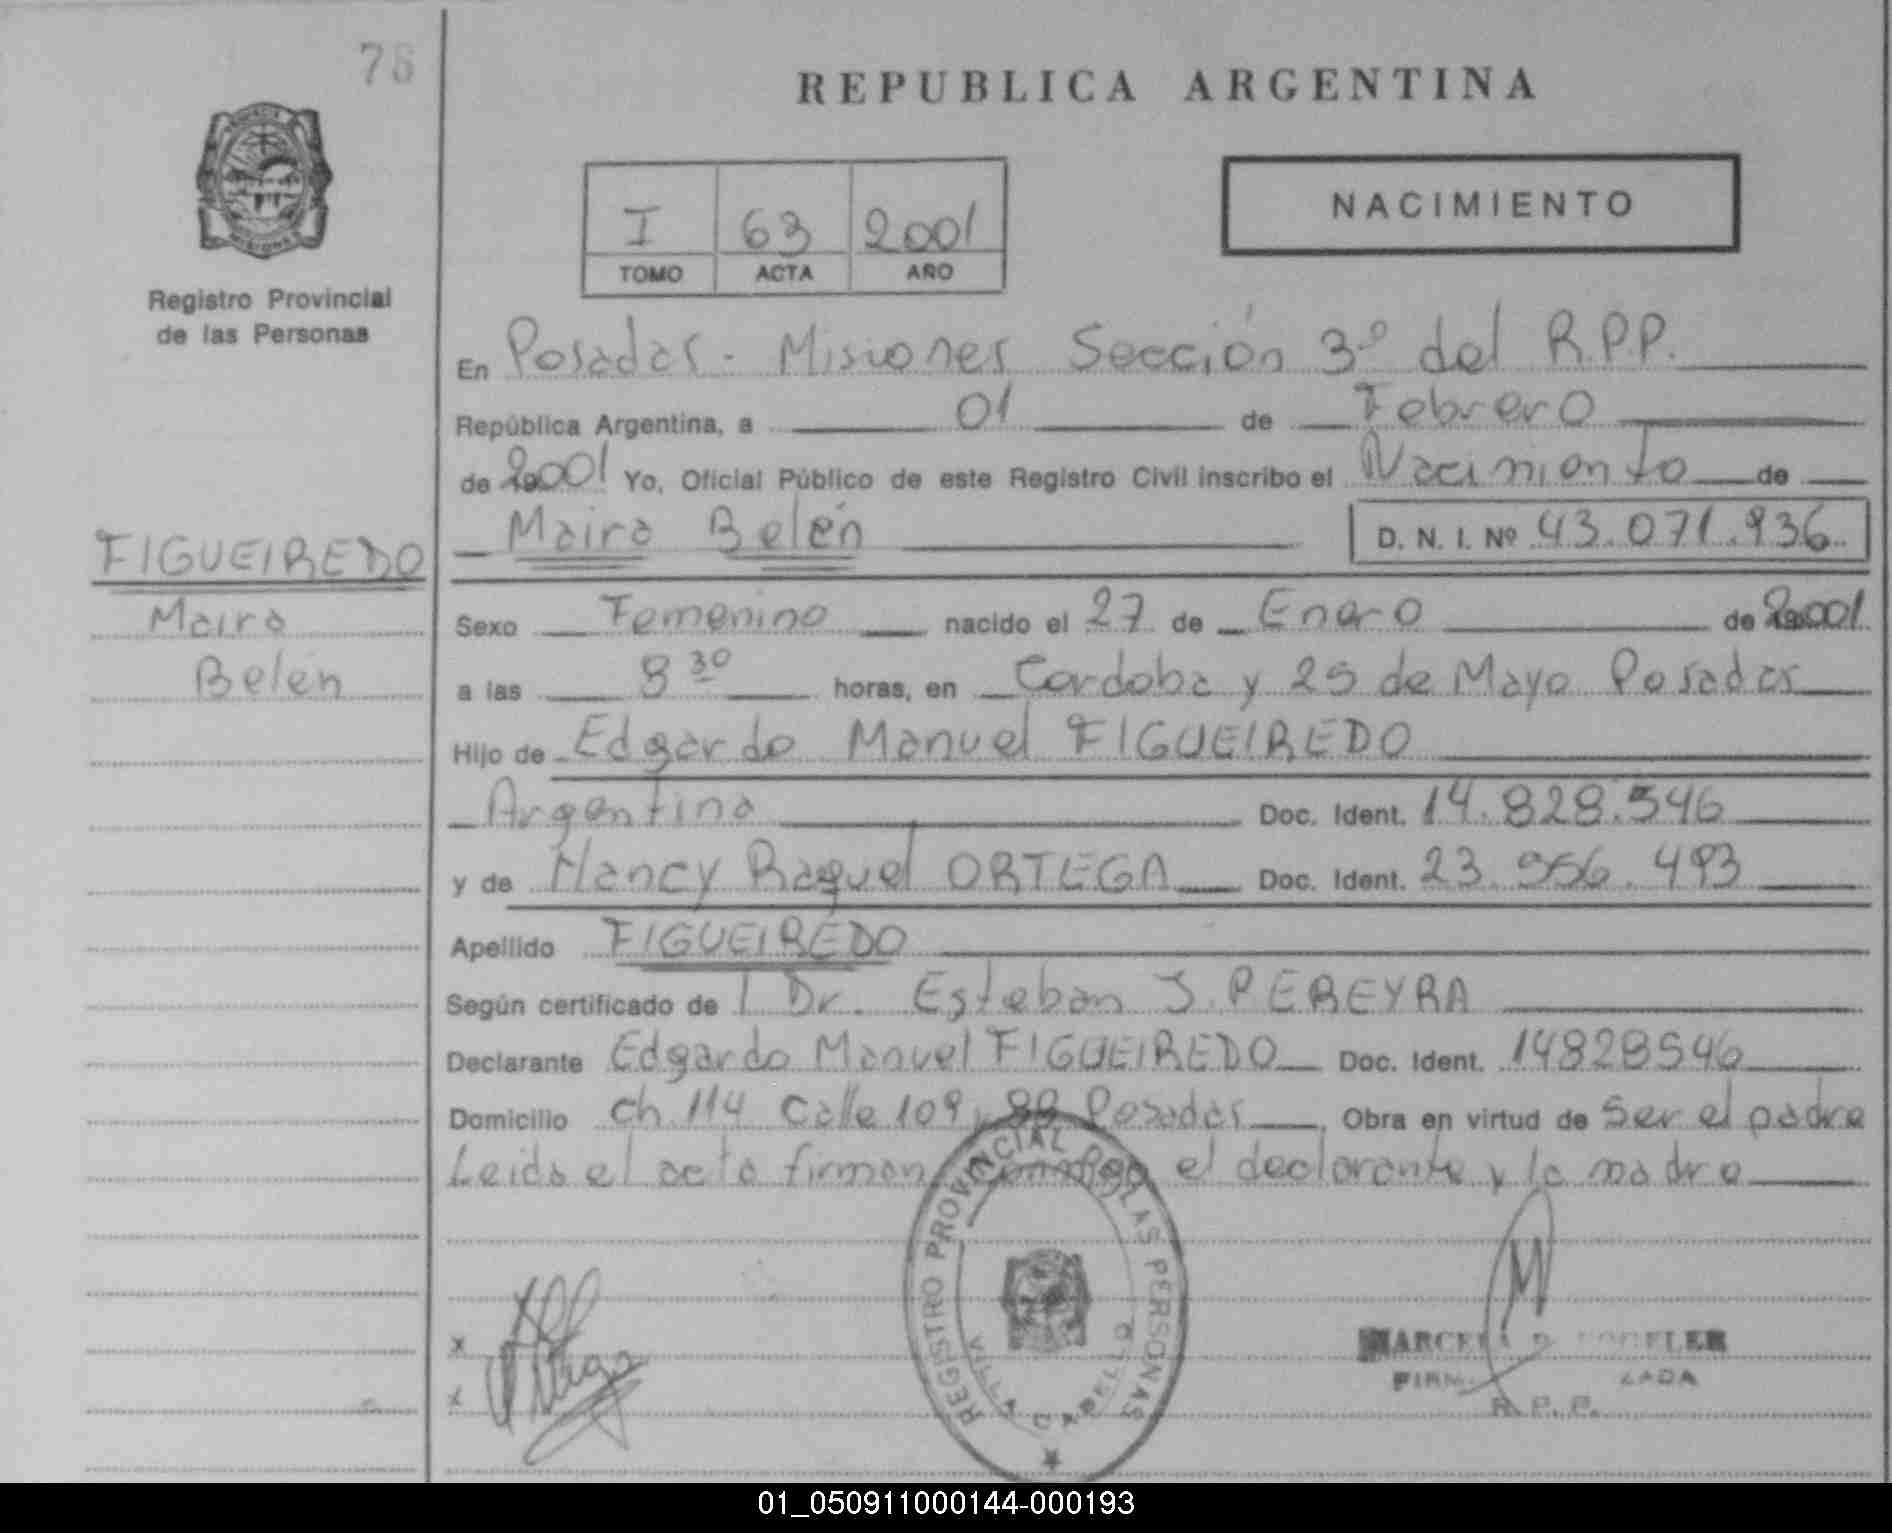 76
REPUBLICA ARGENTINA
NACIMIENTO
I 63 2001
TOMO ACTA AÑO
MISIONES
Registro Provincial
de las Personas
En Posadas - Misiones Sección 3º del R.P.P.
República Argentina, a 01 de Febrero
de 2001 Yo, Oficial Público de este Registro Civil inscribo el Nacimiento de
Maira Belén D. N. I. Nº 43.071.936
FIGUEIREDO
Maira
Belén
Sexo Femenino nacido el 27 de Enero de 2001
a las 8 30 horas, en Cordoba y 25 de Mayo Posadas
Hijo de Edgardo Manuel FIGUEIREDO
Argentina Doc. Ident. 14.828.546
y de Nancy Raquel ORTEGA Doc. Ident. 23.956.493
Apellido FIGUEIREDO
Según certificado de l Dr. Esteban J. PEREYRA
Declarante Edgardo Manuel FIGUEIREDO Doc. Ident. 14828546
Domicilio ch 114 Calle 109 y 88 Posadas, Obra en virtud de Ser el padre
Leida el acta firman el declarante y la madre
REGISTRO PROVINCIAL DE LAS PERSONAS
VILLA CABELLO
x
x
MARCELA
R. P. P.
01_050911000144-000193